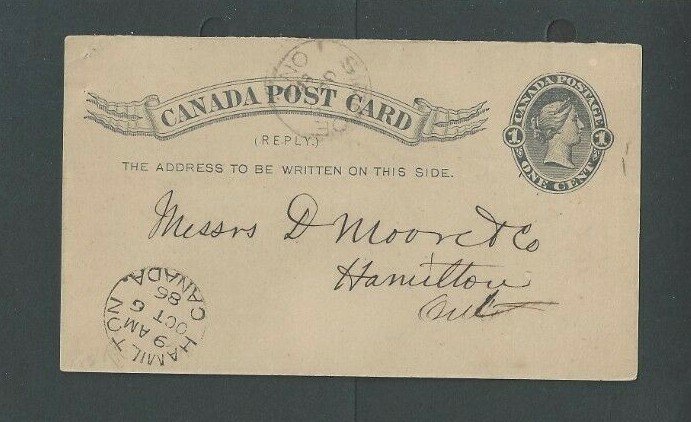 CANADA POST CARD
(REPLY.)
THE ADDRESS TO BE WRITTEN ON THIS SIDE.
CANADA POSTAGE
1 1
ONE CENT
Messrs D Moore & Co
Hamilton
Ont
HAMILTON
9 AM
OCT 6
86
CANADA.